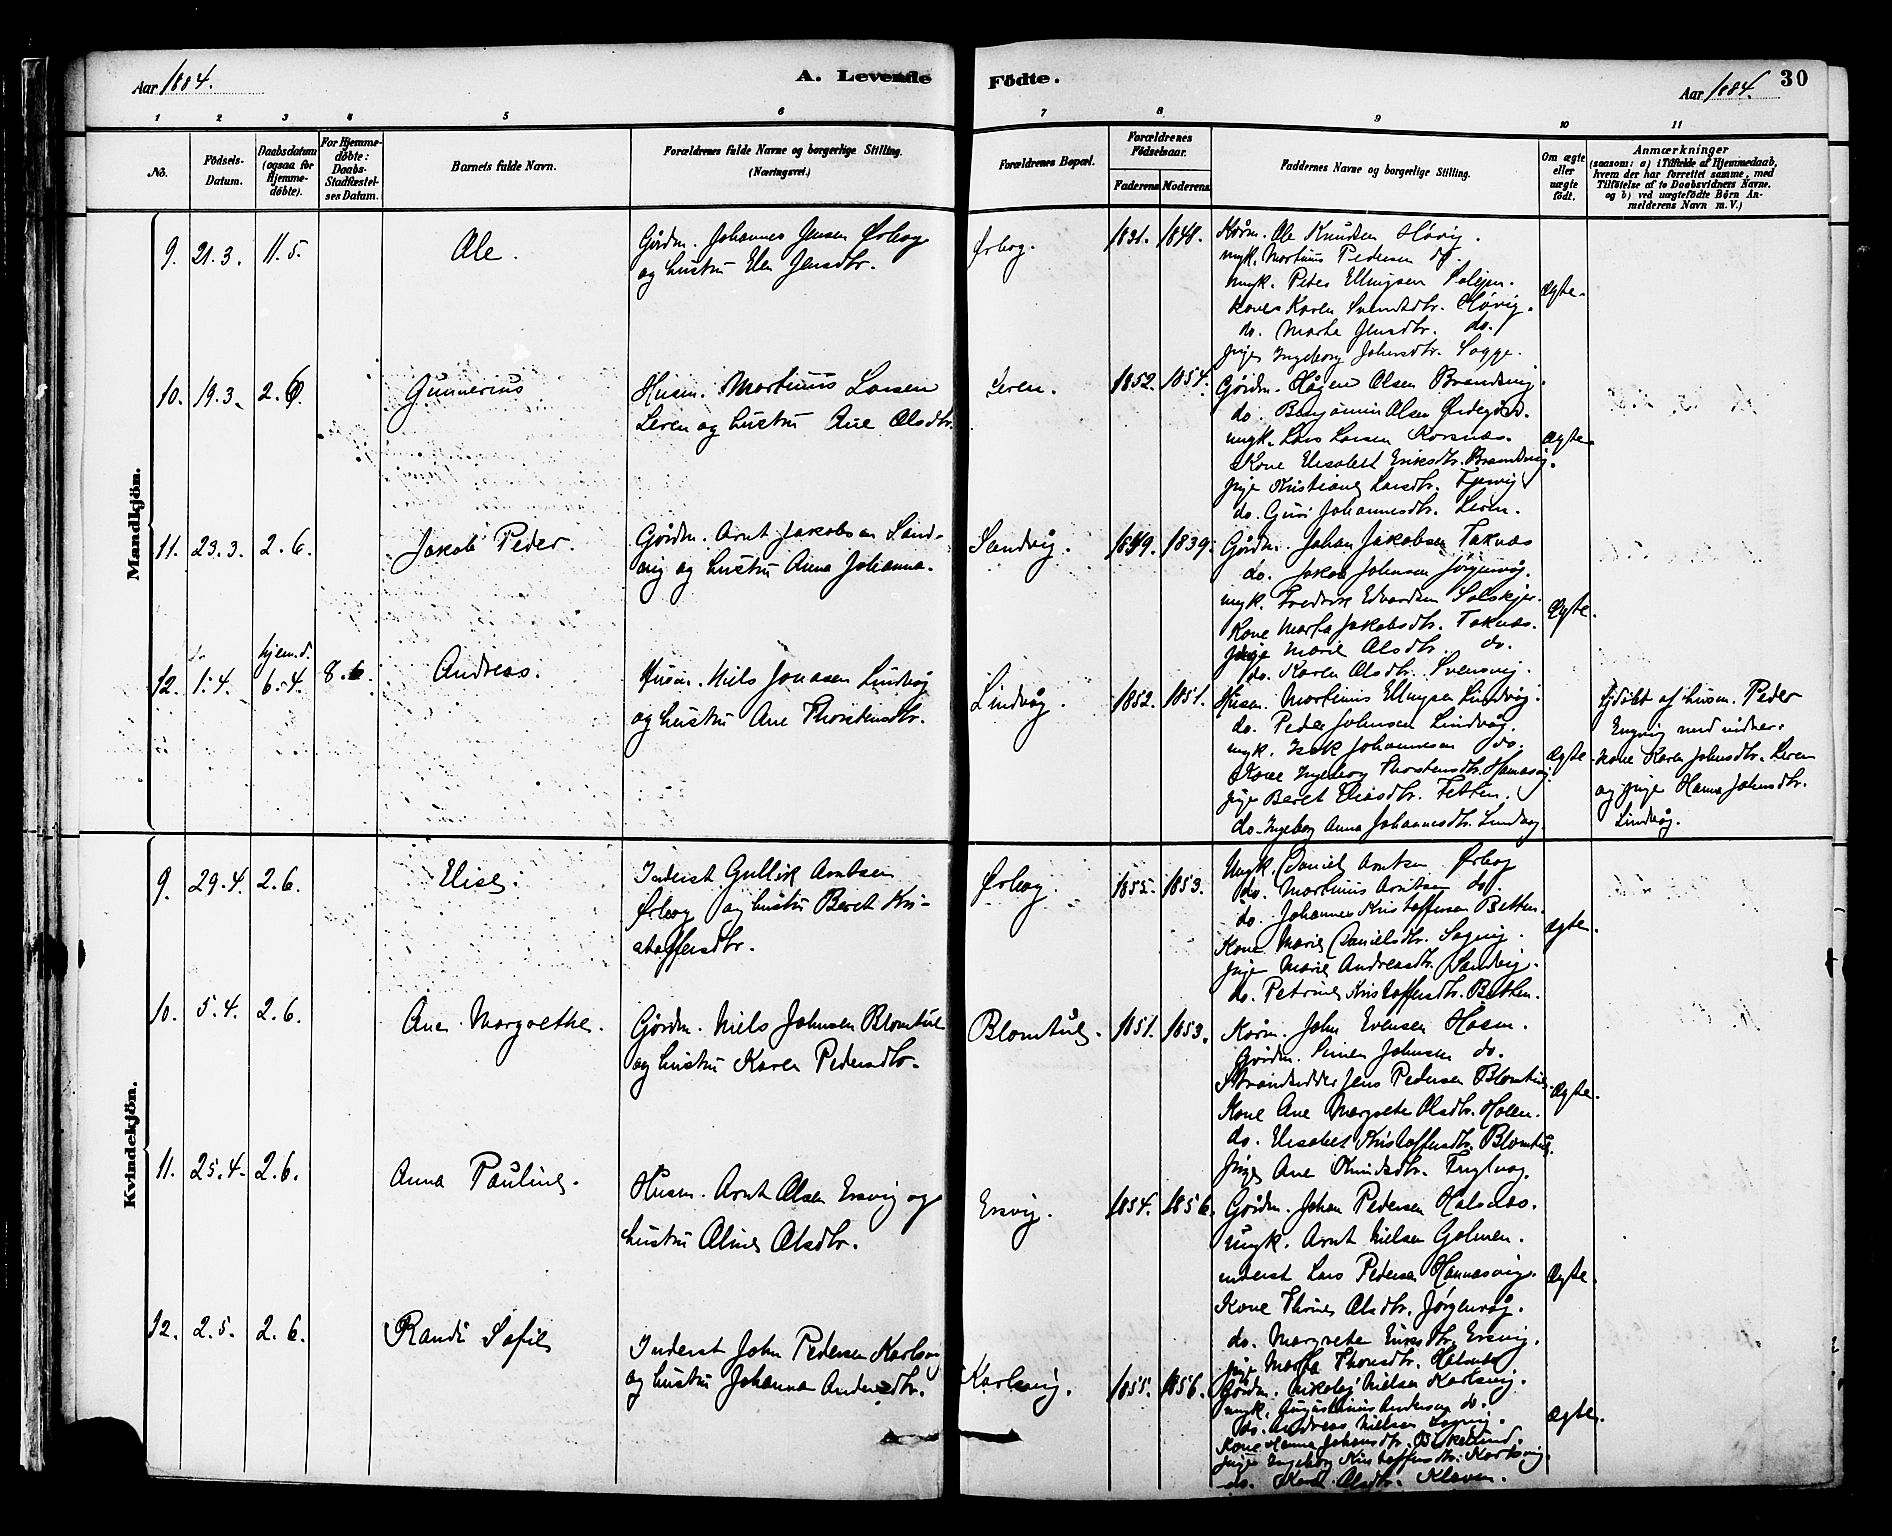 Aar 1884.
A. Levende Födte.
Aar 1884. 30
1 2 3 4 5 6 7 8 9 10 11
No.
Födsels-Datum.
Daabsdatum (ogsaa for Hjemmedöbte).
For Hjemmedöbte: Daabs-Stadfæstelses Datum.
Barnets fulde Navn.
Forældrenes fulde Navne og borgerlige Stilling. (Næringsvei.)
Forældrenes Bopæl.
Forældrenes Födselsaar.
Faderens Moderens
Faddernes Navne og borgerlige Stilling.
Om ægte eller uægte födt.
Anmærkninger
(saasom: a) i Tilfælde af Hjemmedaab,
hvem der har forrettet samme, med
Tilföielse af to Daabsvidners Navne.
og b) ved uægtefödte Börn An-
melderens Navn m. V.)
Mandkjön.
9. 21.3. 11.5.
Ole.
Gårdm. Johannes Jensen Ørbog
og hustru Elen Jensdtr.
Ørbog.
1831. 1848.
Kårm. Ole Knudsen Høvig.
ungk. Martinus Pedersen do.
ungk. Peter Ellingsen
Kone Karen Svendsdtr. Høvig.
do. Marta Jensdtr. do.
pige Ingeborg Johnsdtr. Sogge.
Ægte.
10. 19.3. 2.6.
Gunnerius
Husm. Martinus Larsen
Leren og hustru Ane Olsdtr.
Leren.
1852. 1854.
Gårdm. Hågen Olsen Brandsvig.
do. Benjamin Olsen Ødegård.
ungk. Lars Larsen Korsnæs.
Kone Elisabet Eriksdtr. Brandsvig.
pige Kristiane Larsdtr.
do. Guri Johannesdtr. Leren.
Ægte
11. 23.3. 2.6.
Jakob Peder.
Gårdm. Arnt Jakobsen Sand-
vig og hustru Anna Johanna.
Sandvig.
1849. 1839.
Gårdm. Johan Jakobsen Taknæs
do. Jakob Johnsen Jørgenvåg.
ungk. Fredrik Edvardsen Solskjer.
Kone Marta Jakobsdtr. Taknæs.
pige Marie Olsdtr. do.
do. Karen Olsdtr. Svensvig.
Ægte.
12. 1.4.
hjem.d.
6.4. 8.6.
Andreas.
Husm. Niels Jonassen Lindvåg
og hustru Ane Thorstensdtr.
Lindvåg.
1852. 1851.
Husm. Martinus Ellingsen Lindvåg.
do. Peder Johnsen Lindvåg.
ungk. Isak Johannesen do.
Kone Ingeborg Thorstensdtr. Hamnsvig
pige Beret Eliasdtr. Fetten.
do. Ingeborg Anna Johannesdtr. Lindvåg.
Ægte
Hjdøbt af husm. Peder
Engvig med vidner:
Kone Karen Johnsdtr. Leren
og pige Hanna Johnsdtr.
Lindvåg.
Kvindekjön.
9. 29.4. 2.6.
Elise.
Inderst Gullik Arntsen
Ørbog og hustru Beret Kri-
stoffersdtr.
Ørbog.
1855. 1853.
Ungk. Daniel Arntsen Ørbog
do. Martinus Arntsen do.
do. Johannes Kristoffersen Betten.
Kone Marie Danielsdtr. Sagvig.
pige Marie Andreasdtr. Sandvig.
do. Petrine Kristoffersdtr. Betten.
Ægte.
10. 5.4. 2.6.
Ane Margrethe.
Gårdm. Niels Johnsen Blomtul
og hustru Karen Pedersdtr.
Blomtul.
1851. 1853.
Kårm. John Evensen Hosen.
Gårdm. Simen Johnsen do.
Strandsidder Jens Pedersen Blomtul.
Kone Ane Margrete Olsdtr. Hosen.
do. Elisabet Kristoffersdtr. Blomtul.
pige Ane Knudsdtr. Fuglvåg.
Ægte.
11. 25.4. 2.6.
Anna Pauline.
Husm. Arnt Olsen Ersvig og
hustru Oline Olsdtr.
Ersvig.
1854. 1856.
Gårdm. Johan Pedersen Halsnæs.
ungk. Arnt Nielsen Golmen.
inderst Lars Pedersen Hannasvig.
Kone Thrine Olsdtr. Jørgenvåg.
do. Margrete Eriksdtr. Ersvig.
pige Marta Thomsdtr. Halsnæs
Ægte.
12. 2.5. 2.6.
Randi Sofie
Inderst John Pedersen Karlsvig
og hustru Johanna Andersdtr.
Karlsvig.
1855. 1856.
Gårdm. Nikolaj Nielsen Karlsvig.
ungk. Augustinus Andersen do.
do. Andreas Nielsen Sagvig.
Kone Hanna Johansdtr. Birkelund.
pige Ingeborg Kristoffersdtr. Karlsvig.
do. Karen Olsdtr. Kleven.
Ægte.